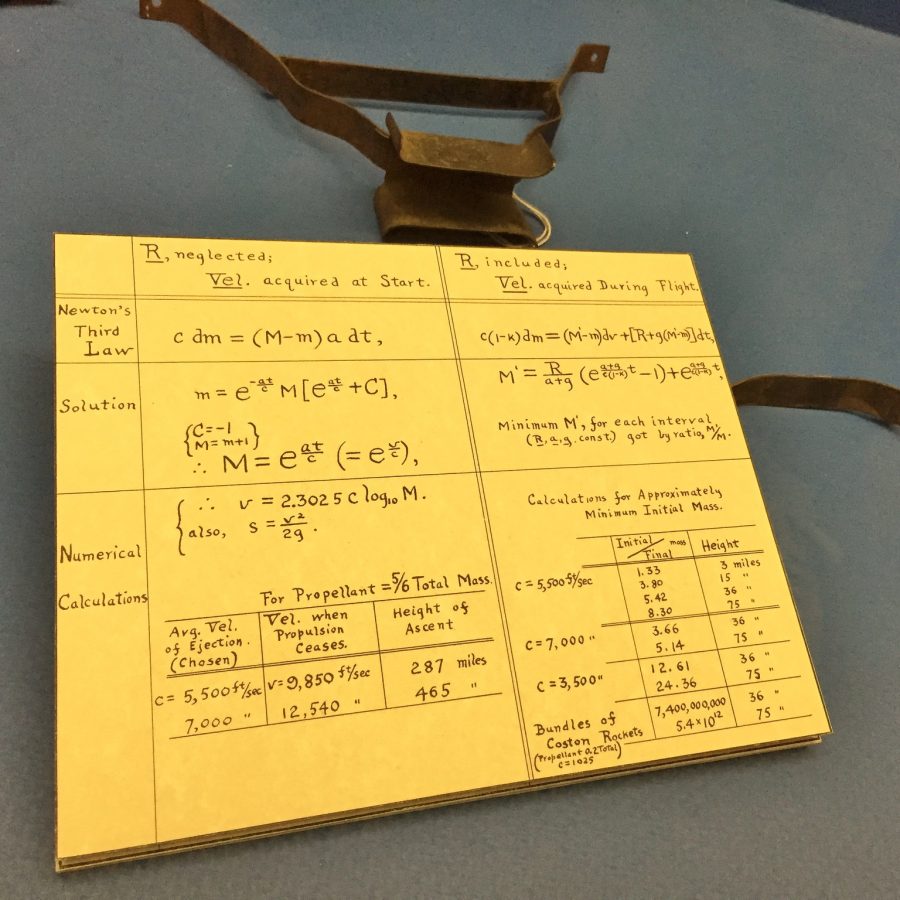 R, neglected;
Vel. acquired at Start.
R, included;
Vel. acquired During Flight.
Newton's
Third
Law
c dm = (M-m) a dt,
c(1-K)dm=(M-m)dv+[R+g(M-m)]dt,
Solution
m = e^-at/c M[e^at/c + C],
{C=-1
M=m+1}
∴ M = e^at/c (= e^v/c),
M' = R/a+g (e^a+g/c(1-K) t -1)+e^a+g/c(1-K) t,
Minimum M', for each interval
(R, a, g, const.) got by ratio, M'/M.
Numerical
Calculations
{∴ v = 2.3025 c log10 M.
also, s = v²/2g.
For Propellant = 5/6 Total Mass.
Avg. Vel. of Ejection. (Chosen) Vel. when Propulsion Ceases. Height of Ascent
c = 5,500 ft/sec v = 9,850 ft/sec 287 miles
7,000 " 12,540 " 465 "
Calculations for Approximately
Minimum Initial Mass.
Initial/Final mass Height
c = 5,500 ft/sec 1.33 3 miles
3.80 15 "
5.42 36 "
8.30 75 "
c = 7,000 " 3.66 36 "
5.14 75 "
c = 3,500 " 12.61 36 "
24.36 75 "
Bundles of 7,400,000,000 36 "
Coston Rockets 5.4×10^12 75 "
(Propellant 0.2 Total)
c=1025